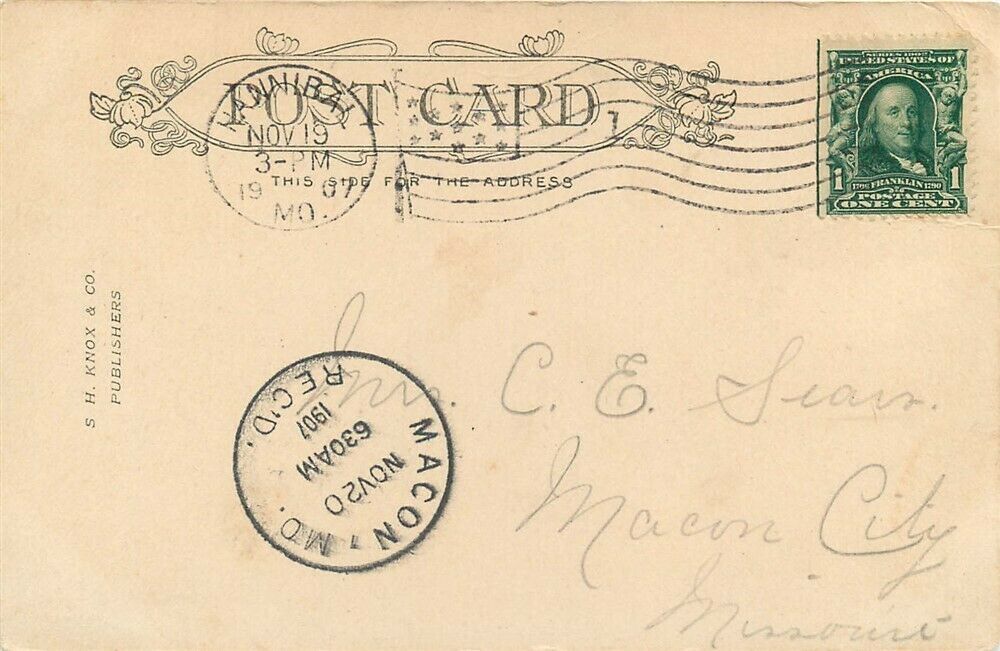 POST CARD
THIS SIDE FOR THE ADDRESS
HANNIBAL
NOV 19
3-PM
1907
MO.
1
SERIES 1902
UNITED STATES OF
AMERICA
1706 FRANKLIN 1790
1 1
POSTAGE
ONE CENT
S. H. KNOX & CO.
PUBLISHERS
MACON, MO.
NOV 20
630AM
1907
REC'D.
Mrs. C. E. Sears.
Macon City
Missouri